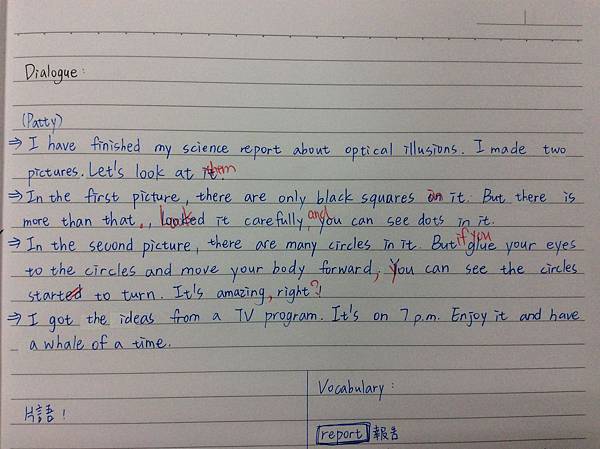 Dialogue:
(Patty)
⇒ I have finished my science report about optical illusions. I made two
pictures. Let's look at them
⇒ In the first picture, there are only black squares in it. But there is
more than that., Looked it carefully, and you can see dots in it.
⇒ In the second picture, there are many circles in it. But if you glue your eyes
to the circles and move your body forward, you can see the circles
started to turn. It's amazing, right?!
⇒ I got the ideas from a TV program. It's on 7 p.m. Enjoy it and have
a whale of a time.
Vocabulary:
片語!
report 報告